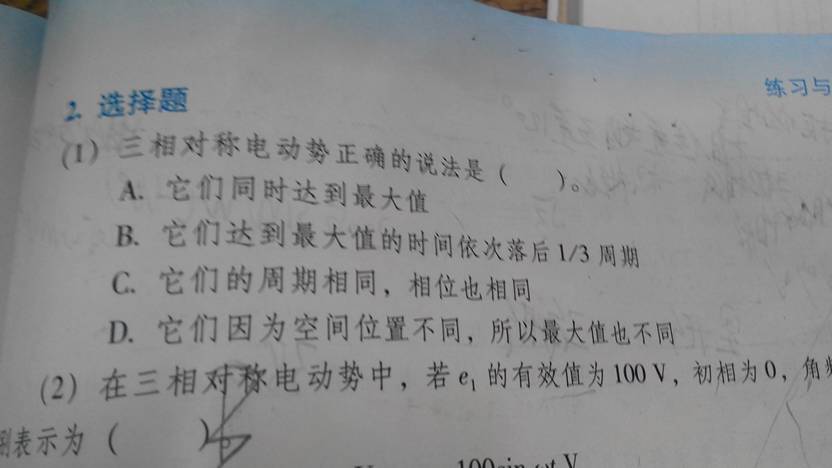 练习与
2. 选择题
(1) 三相对称电动势正确的说法是 (     )。
A. 它们同时达到最大值
B. 它们达到最大值的时间依次落后 1/3 周期
C. 它们的周期相同，相位也相同
D. 它们因为空间位置不同，所以最大值也不同
(2) 在三相对称电动势中，若 e₁ 的有效值为 100 V，初相为 0，角频
别表示为 (     )
100sin ωt V